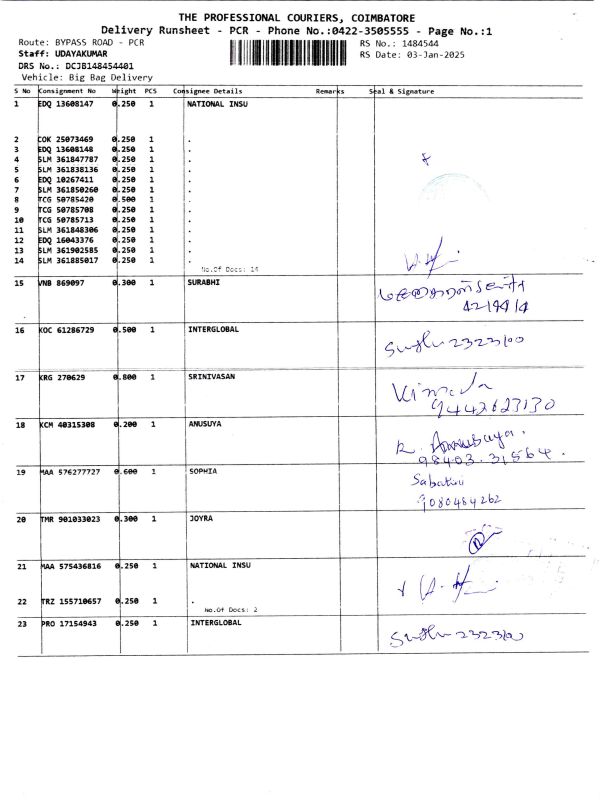 THE PROFESSIONAL COURIERS, COIMBATORE
Delivery Runsheet - PCR - Phone No.:0422-3505555 - Page No.:1
Route: BYPASS ROAD - PCR RS No.: 1484544
Staff: UDAYAKUMAR RS Date: 03-Jan-2025
DRS No.: DCJB148454401
Vehicle: Big Bag Delivery
S No Consignment No Weight PCS Consignee Details Remarks Seal & Signature
1 EDQ 13608147 0.250 1 NATIONAL INSU
2 COK 25073469 0.250 1 .
3 EDQ 13608148 0.250 1 .
4 SLM 361847787 0.250 1 .
5 SLM 361838136 0.250 1 .
6 EDQ 10267411 0.250 1 .
7 SLM 361850260 0.250 1 .
8 TCG 50785420 0.500 1 .
9 TCG 50785708 0.250 1 .
10 TCG 50785713 0.250 1 .
11 SLM 361848306 0.250 1 .
12 EDQ 16043376 0.250 1 .
13 SLM 361902585 0.250 1 .
14 SLM 361885017 0.250 1 .
No.Of Docs: 14
15 VNB 869097 0.300 1 SURABHI
16 KOC 61286729 0.500 1 INTERGLOBAL
2323/00
17 KRG 270629 0.800 1 SRINIVASAN
9442623130
18 KCM 40315308 0.200 1 ANUSUYA
R. Anusuya.
98403.31564.
19 MAA 576277727 0.600 1 SOPHIA
9080484262
20 TMR 901033023 0.300 1 JOYRA
21 MAA 575436816 0.250 1 NATIONAL INSU
22 TRZ 155710657 0.250 1 .
No.Of Docs: 2
23 PRO 17154943 0.250 1 INTERGLOBAL
2323/00